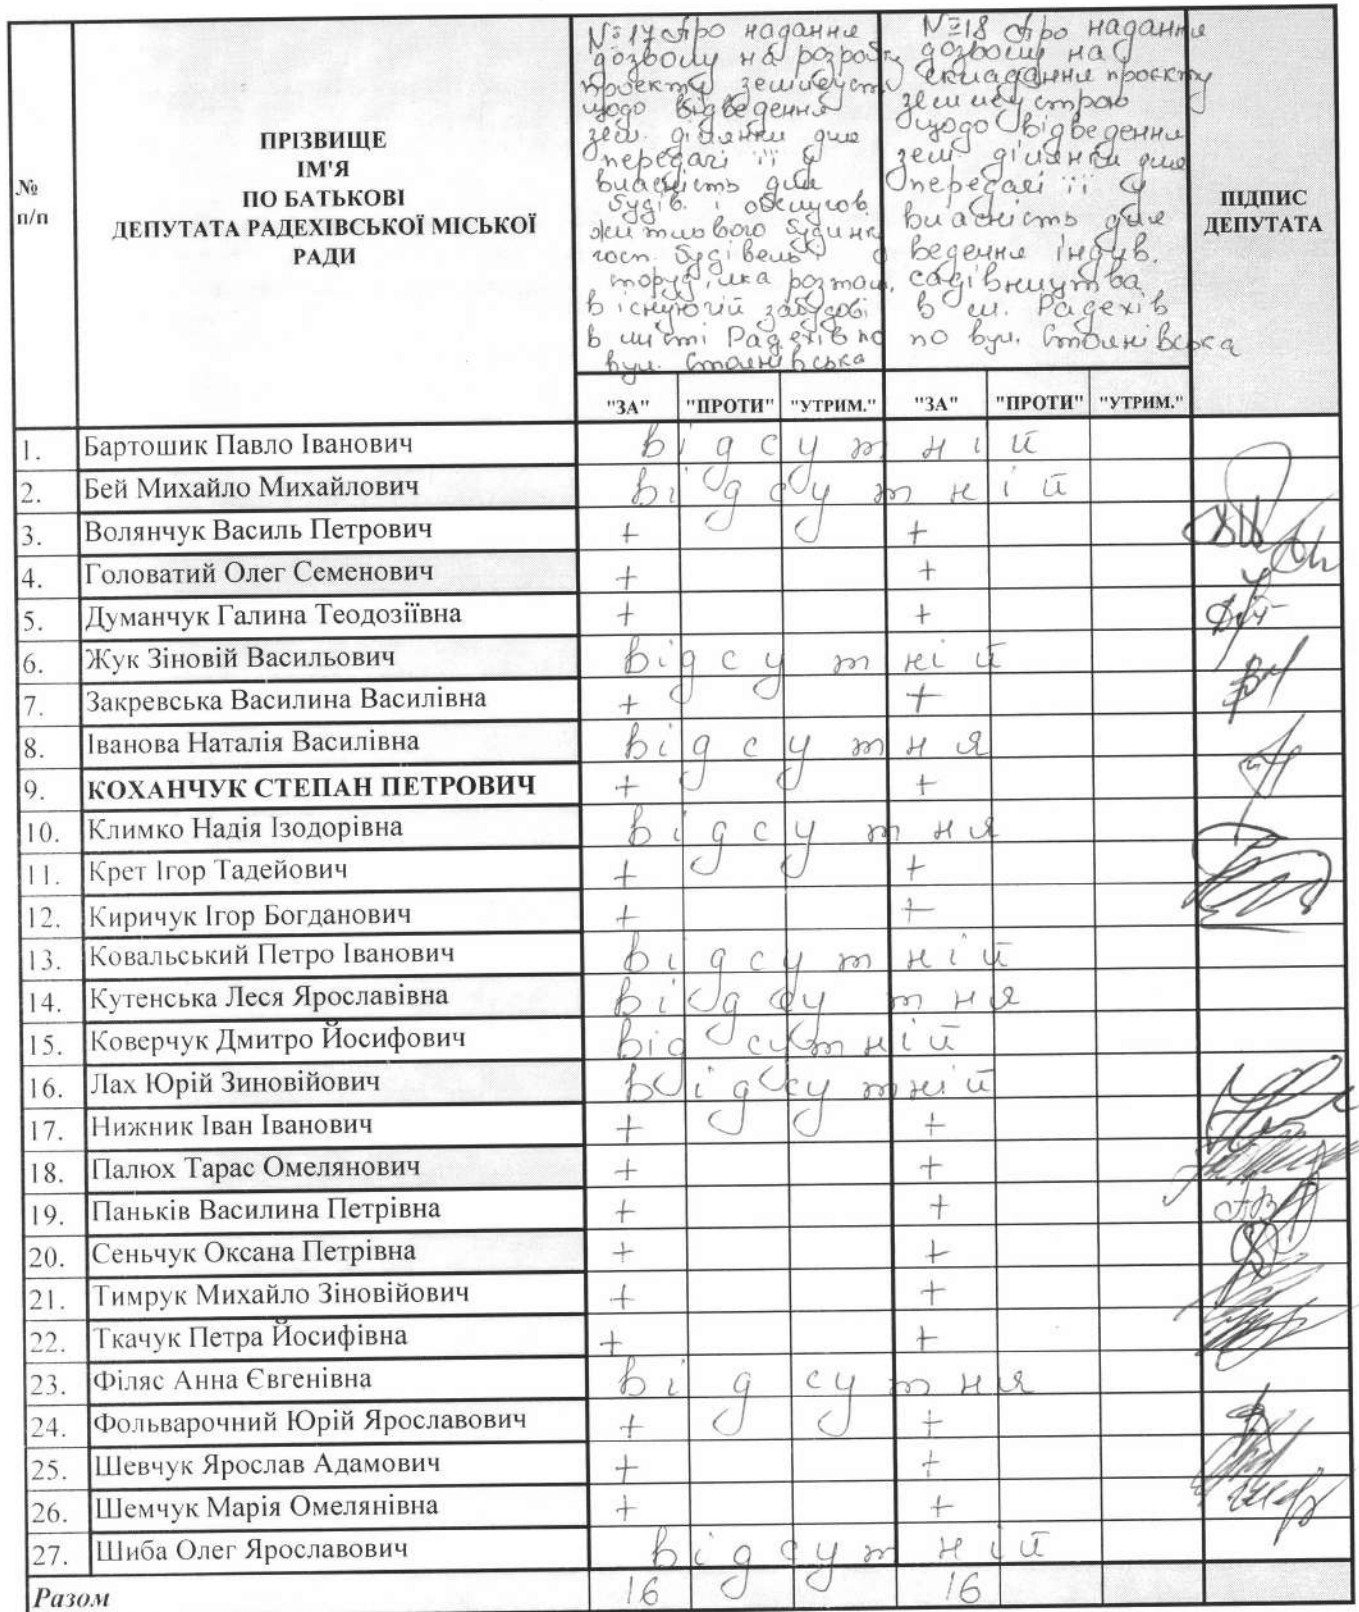 № п/п
ПРІЗВИЩЕ
ІМ'Я
ПО БАТЬКОВІ
ДЕПУТАТА РАДЕХІВСЬКОЇ МІСЬКОЇ
РАДИ
№ 17 Про надання
дозволу на розробку
проекту землеуст
щодо відведення
зем. ділянки для
передачі її у
власність для
будів. і обслугов.
житлового будинку
госп. будівель і
споруд, яка розташ.
в існуючій забудові
в місті Радехів по
вул. Стоянівська
№ 18 Про надання
дозволу на
складання проєкту
землеустрою
щодо відведення
зем. ділянки для
передачі її у
власність для
ведення індив.
садівництва
в м. Радехів
по вул. Стоянівська
ПІДПИС
ДЕПУТАТА
"ЗА" "ПРОТИ" "УТРИМ." "ЗА" "ПРОТИ" "УТРИМ."
1. Бартошик Павло Іванович відсутній
2. Бей Михайло Михайлович відсутній
3. Волянчук Василь Петрович + +
4. Головатий Олег Семенович + +
5. Думанчук Галина Теодозіївна + +
6. Жук Зіновій Васильович відсутній
7. Закревська Василина Василівна + +
8. Іванова Наталія Василівна відсутня
9. КОХАНЧУК СТЕПАН ПЕТРОВИЧ + +
10. Климко Надія Ізодорівна відсутня
11. Крет Ігор Тадейович + +
12. Киричук Ігор Богданович + +
13. Ковальський Петро Іванович відсутній
14. Кутенська Леся Ярославівна відсутня
15. Коверчук Дмитро Йосифович відсутній
16. Лах Юрій Зиновійович відсутній
17. Нижник Іван Іванович + +
18. Палюх Тарас Омелянович + +
19. Паньків Василина Петрівна + +
20. Сеньчук Оксана Петрівна + +
21. Тимрук Михайло Зіновійович + +
22. Ткачук Петра Йосифівна + +
23. Філяс Анна Євгенівна відсутня
24. Фольварочний Юрій Ярославович + +
25. Шевчук Ярослав Адамович + +
26. Шемчук Марія Омелянівна + +
27. Шиба Олег Ярославович відсутній
Разом 16 16